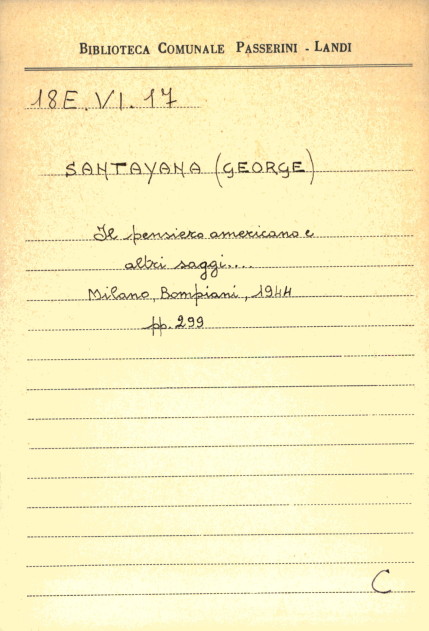 BIBLIOTECA COMUNALE PASSERINI - LANDI
18E.VI.17
SANTAYANA (GEORGE)
Il pensiero americano e
altri saggi....
Milano, Bompiani, 1944
pp. 299
C